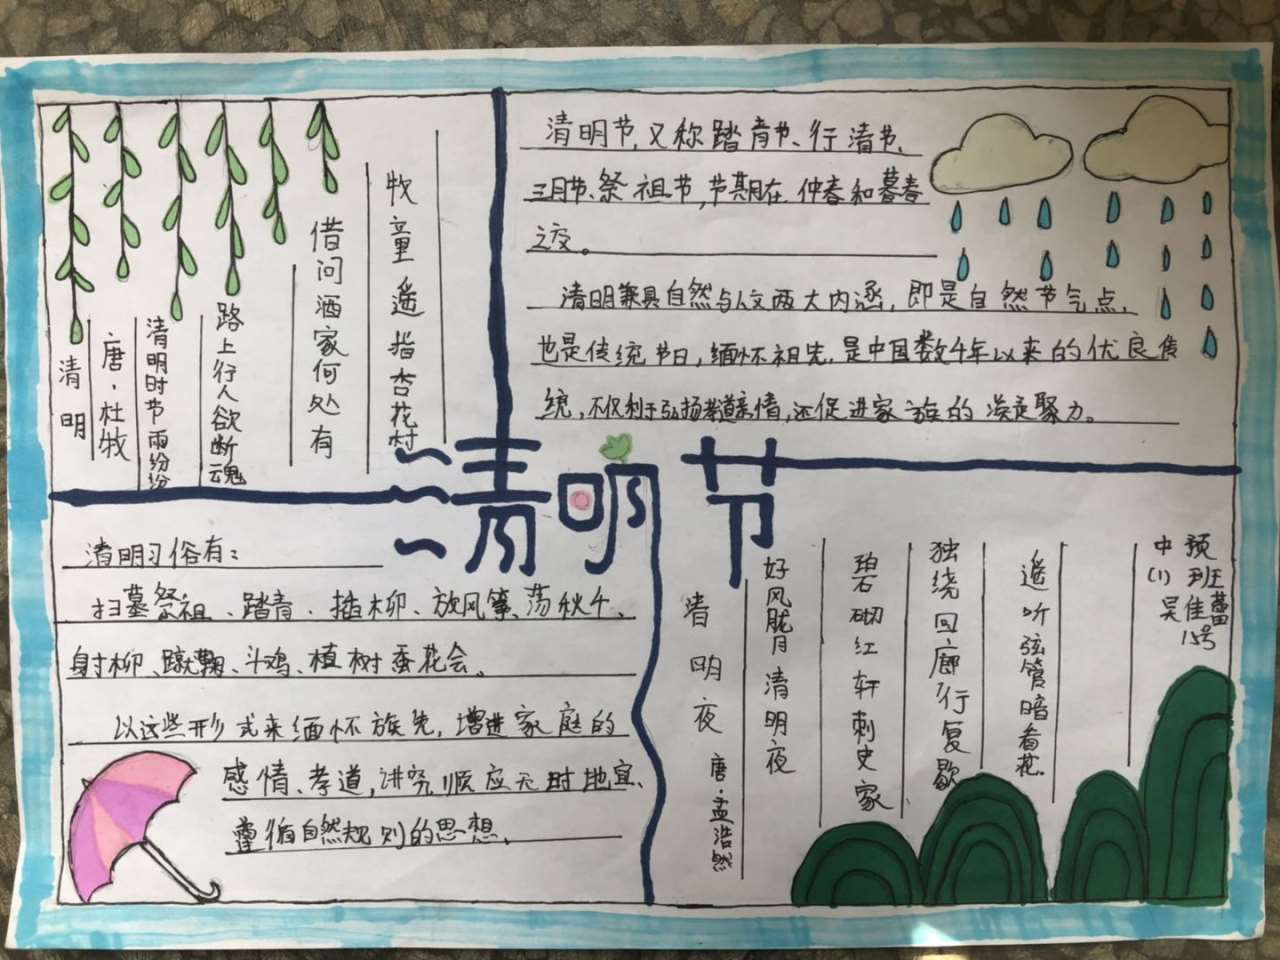 清明
唐·杜牧
清明时节雨纷纷
路上行人欲断魂
借问酒家何处有
牧童遥指杏花村
清明节,又称踏青节、行清节、
三月节、祭祖节,节期在仲春和暮春
之交。
清明兼具自然与人文两大内涵,即是自然节气点,
也是传统节日,缅怀祖先,是中国数千年以来的优良传
统,不仅利于弘扬孝道亲情,还促进家族的凝聚力。
清明节
清明习俗有:
扫墓祭祖、踏青、插柳、放风筝、荡秋千、
射柳、蹴鞠、斗鸡、植树蚕花会。
以这些形式来缅怀族先,增进家庭的
感情、孝道,讲究顺应天时地宜、
遵循自然规则的思想。
清明夜 唐·孟浩然
好风胧月清明夜
碧砌红轩刺史家
独绕回廊行复歇
遥听弦管暗看花.
中预
(1)班
吴佳蕾
15号